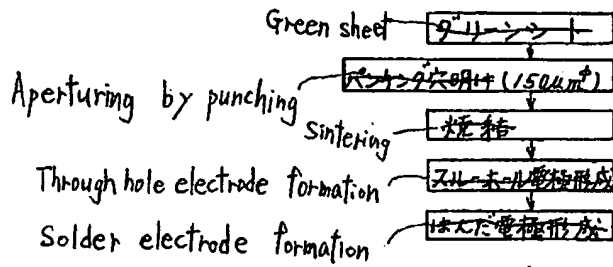 Green sheet グリーンシート
Aperturing by punching パンチング穴明け (150μmφ)
sintering 焼結
Through hole electrode formation スルーホール電極形成
Solder electrode formation はんだ電極形成